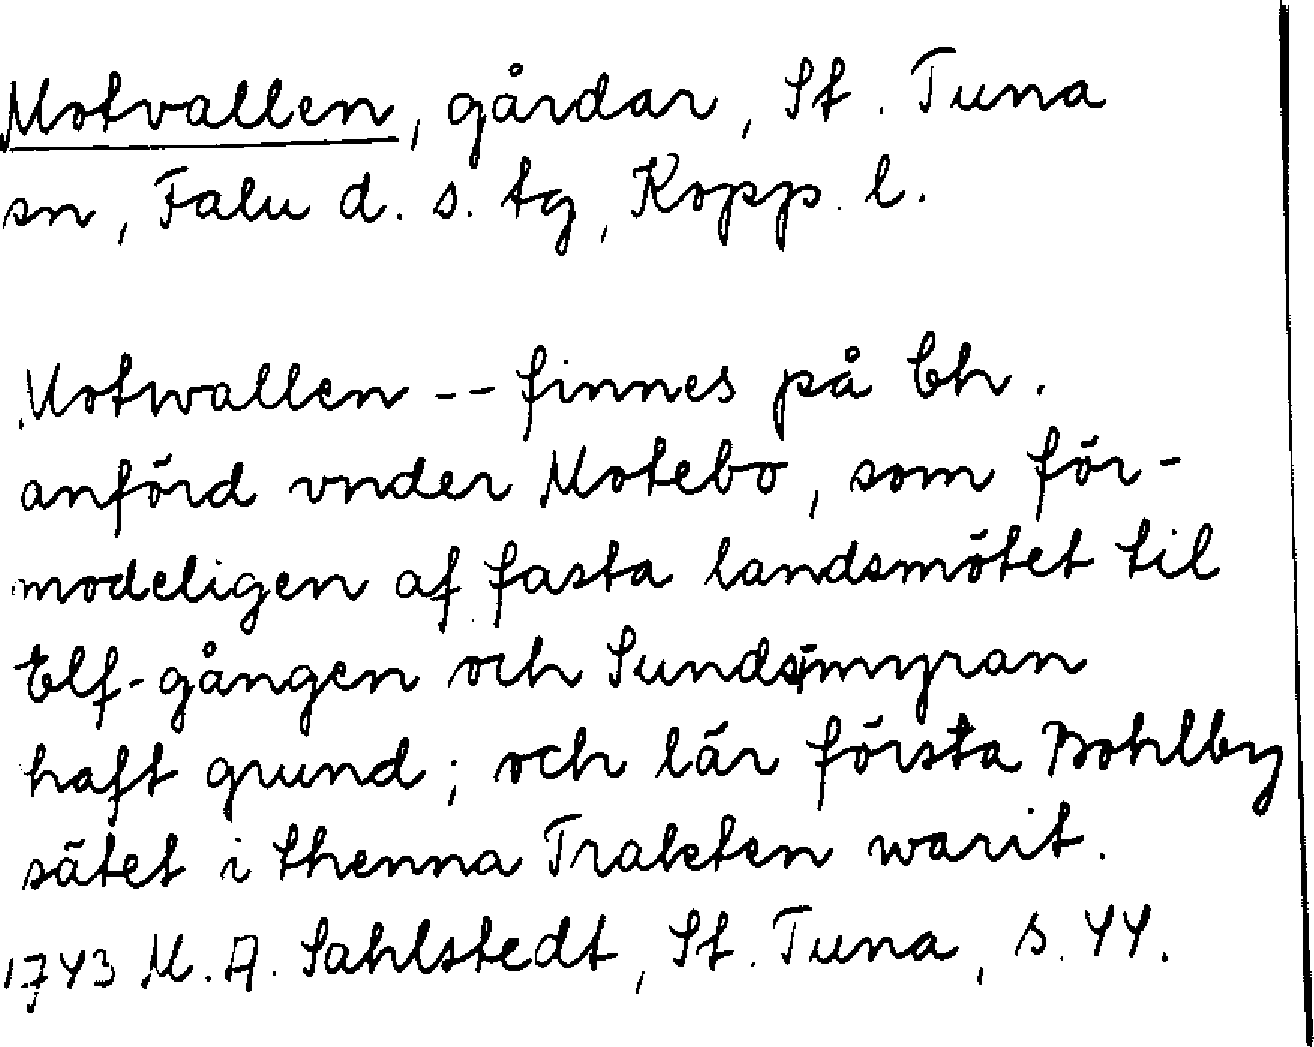 Motvallen, gårdar, St. Tuna
sn, Falu d. s. tg, Kopp. l.
Motwallen -- finnes på Ch.
anförd vnder Motebo, som för-
modeligen af fasta landsmötet til
Elf-gången och Sundsmyran
haft grund; och lär första Bohlby
sätet i thenna Trakten warit.
1743 M. A. Sahlstedt, St. Tuna, s. 44.